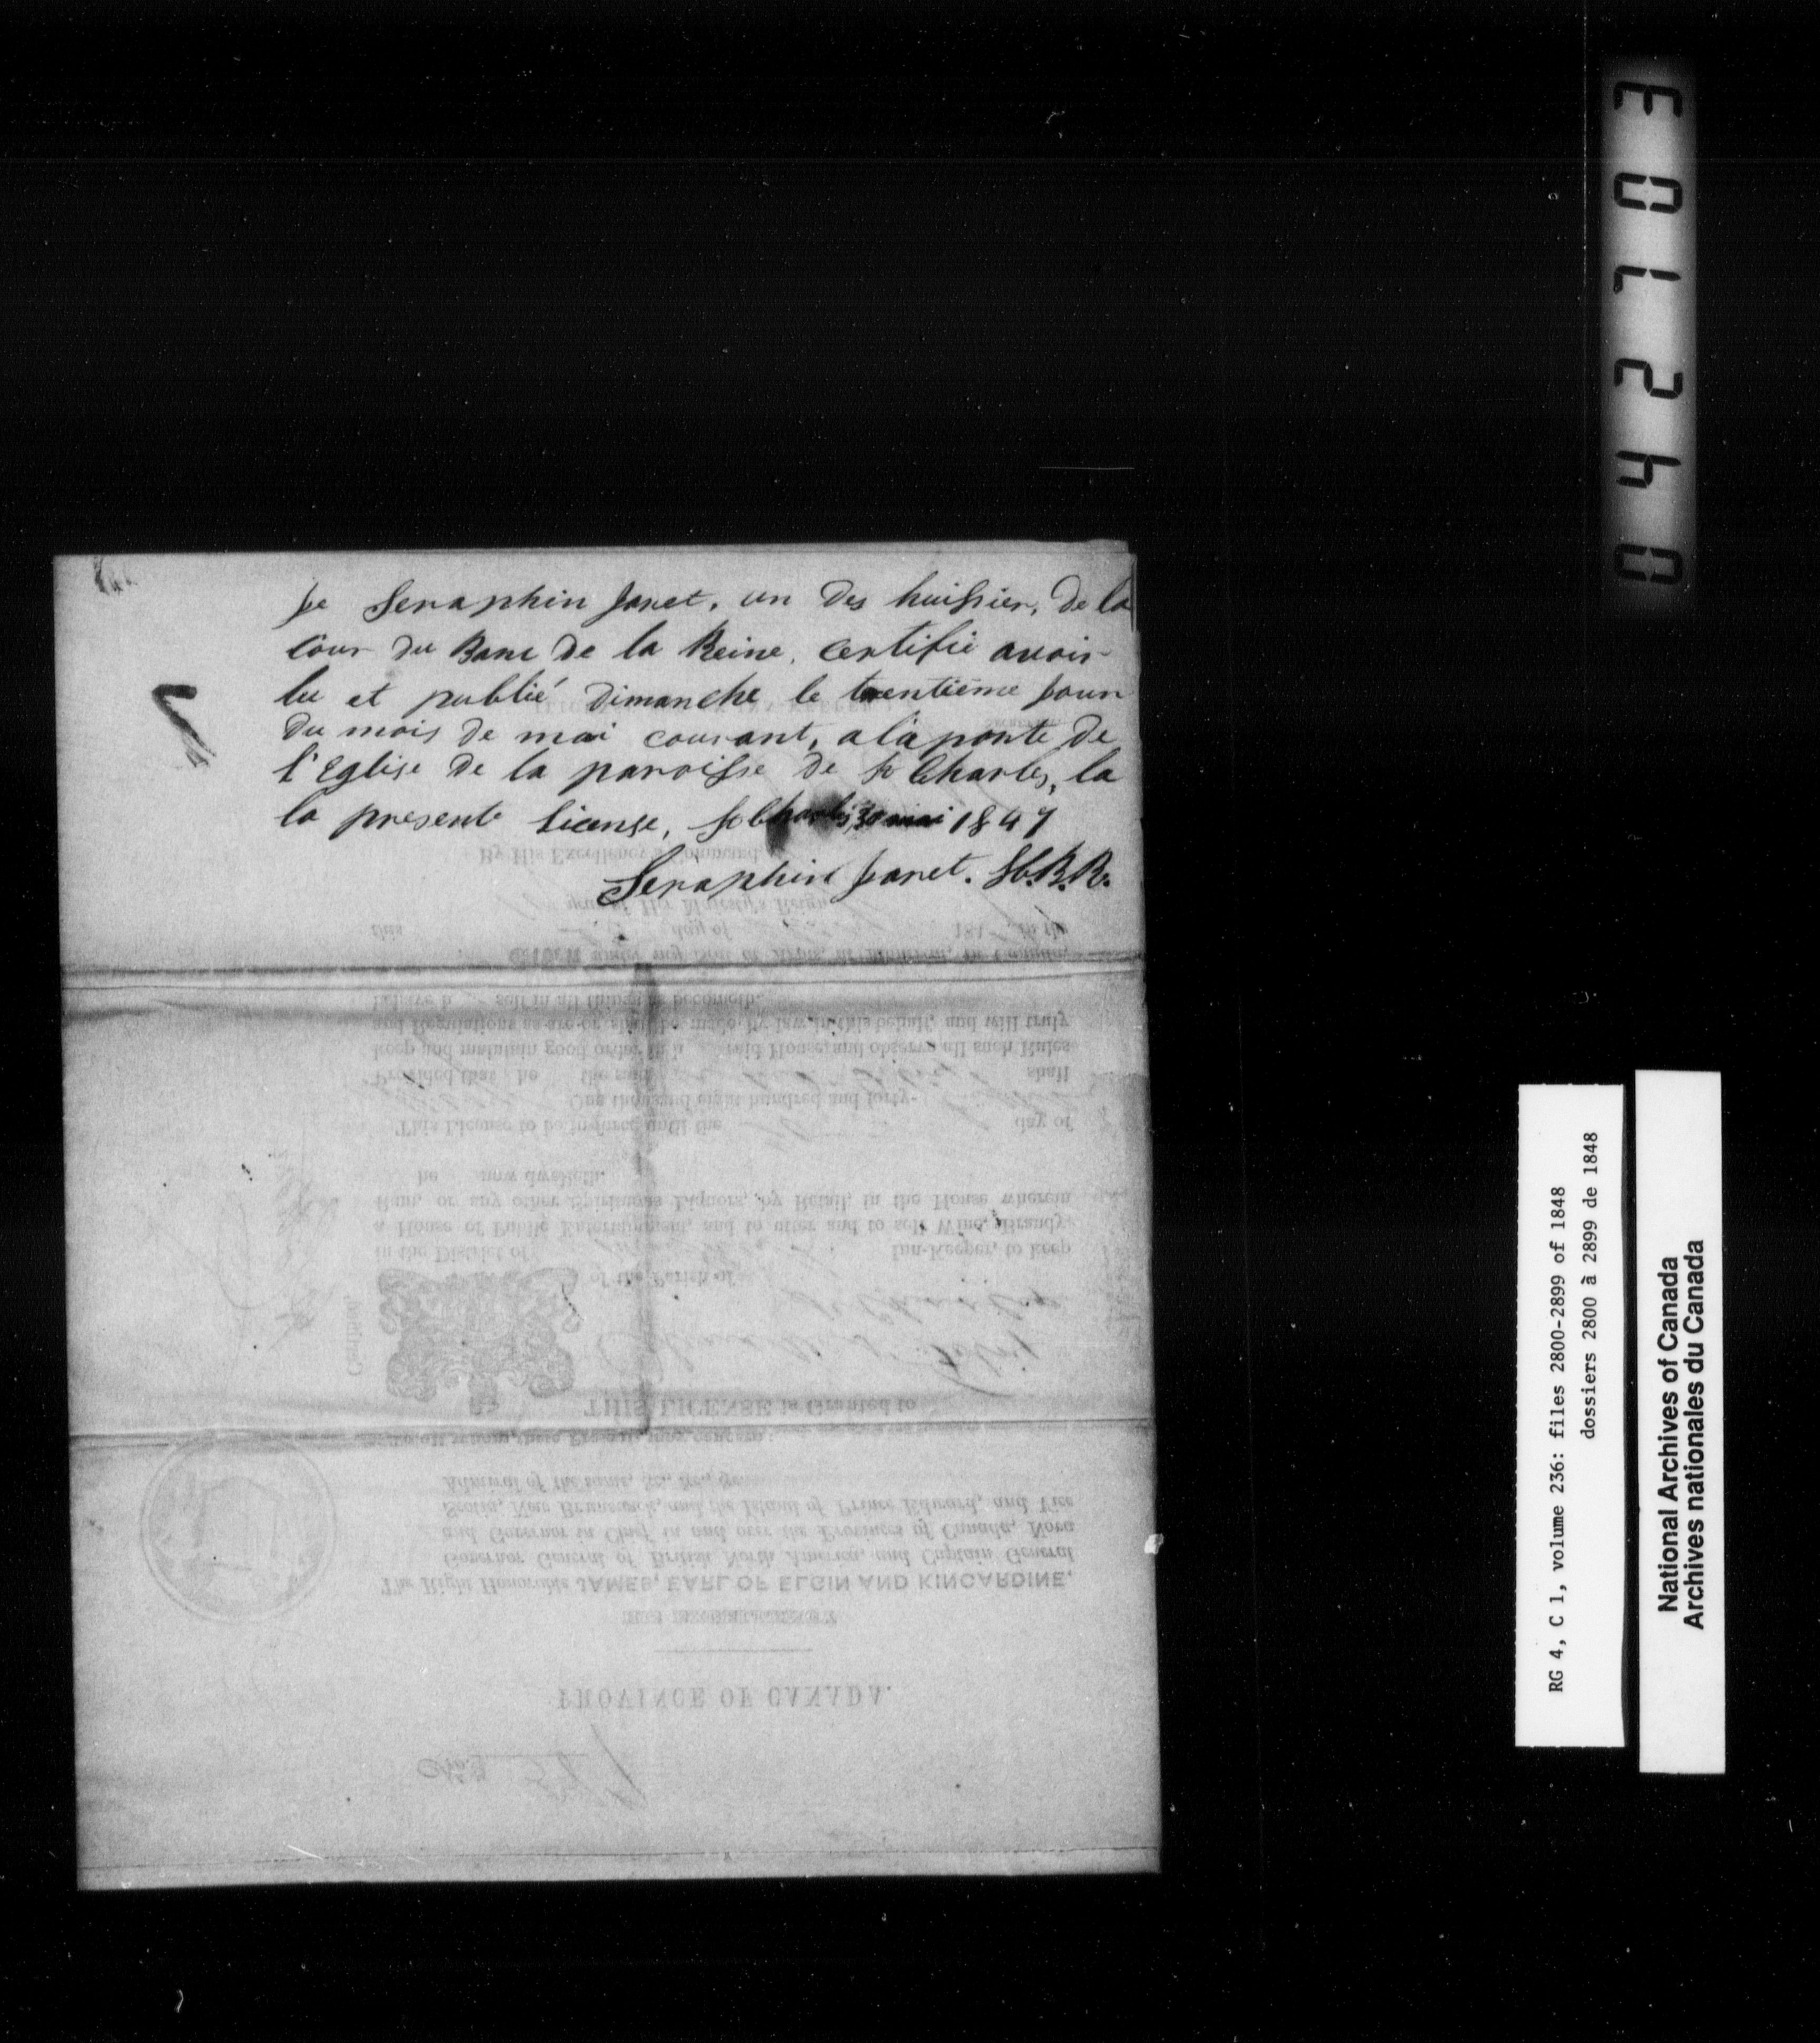 Je Seraphin Jaret, un Des huissier, De la
Cour Du Banc De la Reine, Certifie avoir
lu et publié Dimanche le trentième Jour
Du mois De mai courant, a la porte De
l'Eglise De la paroisse De St Charles, la
la presente License, St Charles, 30 mai 1847
Seraphin Jaret. H.B.R.
By His Excellency's Command
year of Her Majesty's Reign
this day of 184 in the
GIVEN under my Seal at Arms, at Montreal, in Canada,
behave h self in all things as becometh.
and Regulations as are or shall be made by law in this behalf, and will truly
keep and maintain good order in h said House, and observe all such Rules
Provided that he the said shall
One thousand eight hundred and forty-
This License to be in force until the day of
he now dwelleth.
Rum, or any other Spirituous Liquors, by Retail, in the House wherein
a House of Public Entertainment, and to utter and to sell Wine, Brandy,
in the District of Inn-Keeper, to keep
of the Parish of
THIS LICENSE is Granted to
To all whom these Presents may concern:
Admiral of the same, &c., &c., &c.
Scotia, New Brunswick, and the Island of Prince Edward, and Vice
and Governor in Chief in and over the Provinces of Canada, Nova
Governor General of British North America, and Captain General
The Right Honorable JAMES, EARL OF ELGIN AND KINCARDINE,
HIS EXCELLENCY
PROVINCE OF CANADA.
042103
RG 4, C 1, volume 236: files 2800-2899 of 1848
dossiers 2800 à 2899 de 1848
National Archives of Canada
Archives nationales du Canada